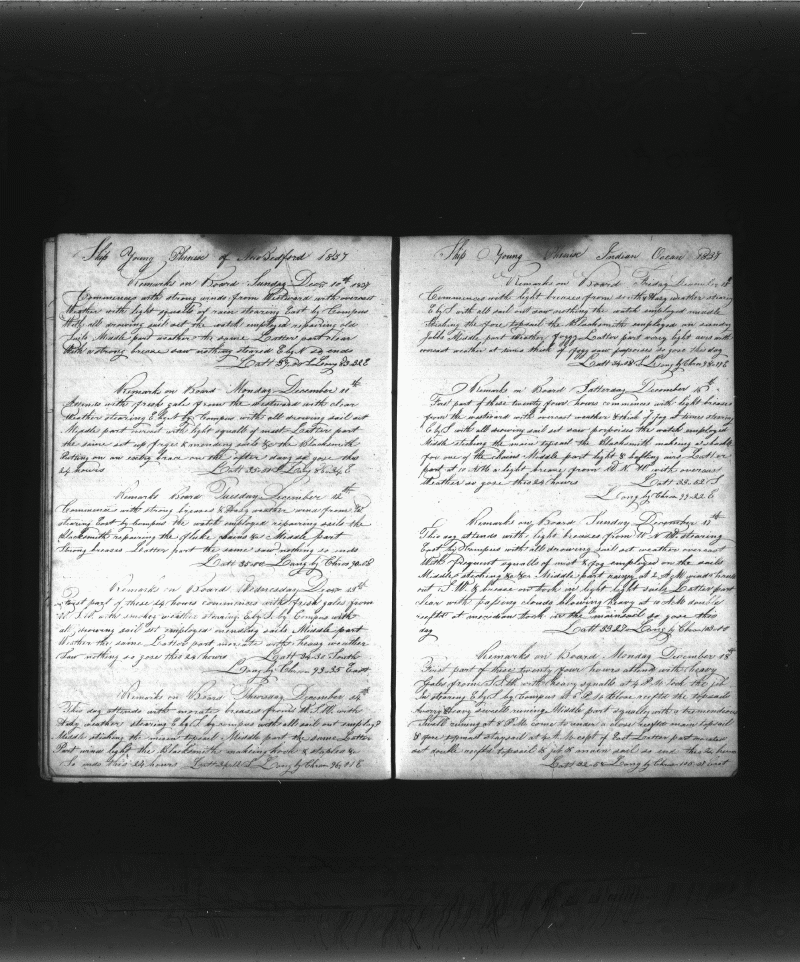 Ship Young Phenix of New Bedford 1837
Remarks on Board Sunday Decr 10th 1837
Commences with strong winds from Westward with overcast
weather with light squalls of rain stearing East by Compus
With all drawing sail out the watch employed repairing old
sails Middle part weather the same Latter part clear
With a strong breeze saw nothing steared E by N so ends
Latt Long 83.22 E
Remarks on Board Monday December 11th
Attends with fresh gales from the Westward with clear
Weather stearing E by S by Compus with all drowing sail out
Middle part overcast with light squalls of mist Latter part
the same set up & mending sails &c the Blacksmith
Putting on an entry brace on the after davy so goes this
24 hours Latt 35 S Long E
Remarks Board Tuesday December 12th
Commences with strong breezes & Hazy weather wind from
stearing East by Compus the watch employed repairing sails the
Blacksmith repairing the fluke chains &c Middle part
Strong breezes Latter part the same saw nothing so ends
Latt 35 Long by Chron 90.08
Remarks on Board Wednesday Decr 13th
First part of these 24 hours commences with fresh gales from
W. S.W. with smokey weather stearing E by S by Compus with
all drowing sail set employed mending sails Middle part
Weather the same Latter part moderate with heavy weather
Saw nothing so goes this 24 hours Latt 34-30 South
Long by Chron 93-35 East
Remarks on Board Thorsday December 14th
This day attends with moderate breezes from the S.W. with
Hazy weather stearing E by S by compus with all sail out employed
Middle stiching the main topsail Middle part the same Latter
Part wind light the Blacksmith making hook & staples &c
So ends this 24 hours Latt S Long by Chron 96,01 E
Ship Young Phenix Indian Ocean 1837
Remarks on Board Friday December 15th
Commences with light breezes from southerly Hazy weather stearing
E by S with all sail out saw nothing the watch employed middle
stiching the fore topsail the Blacksmith employed on sundry
Jobbs Middle part weather foggy Latter part very light airs with
overcast weather at times thick of fogg saw porpoises so goes this day
Latt S Long by Chron 98-07 E
Remarks on Board Satterday December 16th
First part of these twenty four hours commences with light breezes
from the westward with overcast weather & thick of fog at times stearing
E by S with all drowing sail set saw porpoises the watch employed
Middle stiching the main topsail the Blacksmith making a shackle
for one of the chains Middle part light & baffling airs Latter
part at 10 AM a light breeze from W N W. with overcast
Weather so goes this 24 hours Latt 33-52 S
Long by Chron 99-22 E
Remarks on Board Sunday December 17th
This day attends with light breezes from W N W stearing
East by Compus with all drowing sail set weather overcast
With frequent squalls of mist & fog employed on the sails
Middle stiching &c &c Middle part rainy at 2 A.M wind hauld
out S.W. & breeze on took in light sails Latter part
clear with passing clouds blowing heavy at 10 A.M double
reefed at meridian took in the mainsail so goes this
day Latt 33 S Long by Chron
Remarks on Board Monday December 18th
First part of these twenty four hours attend with heavy
Gales from S.S.W with heavy squalls at 4 P.M took the jib
in stearing E by S by Compus at 5 P.M close reefed the topsails
Avery heavy sea running Middle part squally with a tremendous
Swell runing at 8 P.M come to under a close reefed main topsail
& fore topmast staysail at 4 A.M kept of East Latter part moderate
out double reefed topsails & jib & main sail so ends this 24 hours
Latt 32 Long by Chron East